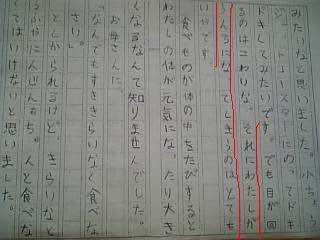 みたいなと思いました。小ちょう
ジェットコースターにのってドキ
ドキしてみたいです。でも目が回
るのはこわいな。それにわたしが
うんちになってしまうのはとても
いやです。
食べものが体の中をたびすると
わたしの体が元気になったり大き
くなるなんて知りませんでした。
お母さんに、
「なんでもすききらいなく食べな
さい」
としかられるけど、きらいな
やにんじんもちゃんと食べな
くてはいけないと思いました。